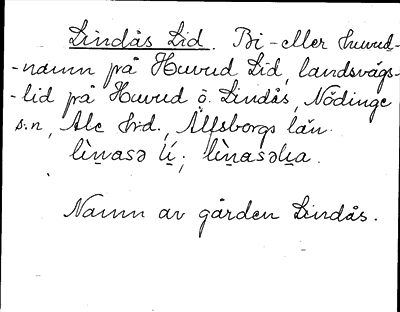 Lindås Lid. Bi- eller huvud-
-namn på Huvud Lid, landsvägs-
-lid på Huvud ö. Lindås, Nödinge
s:n, Ale Hrd., Älfsborgs län.
lìn̪asə lí; lìn̪asəlia.
Namn av gården Lindås.